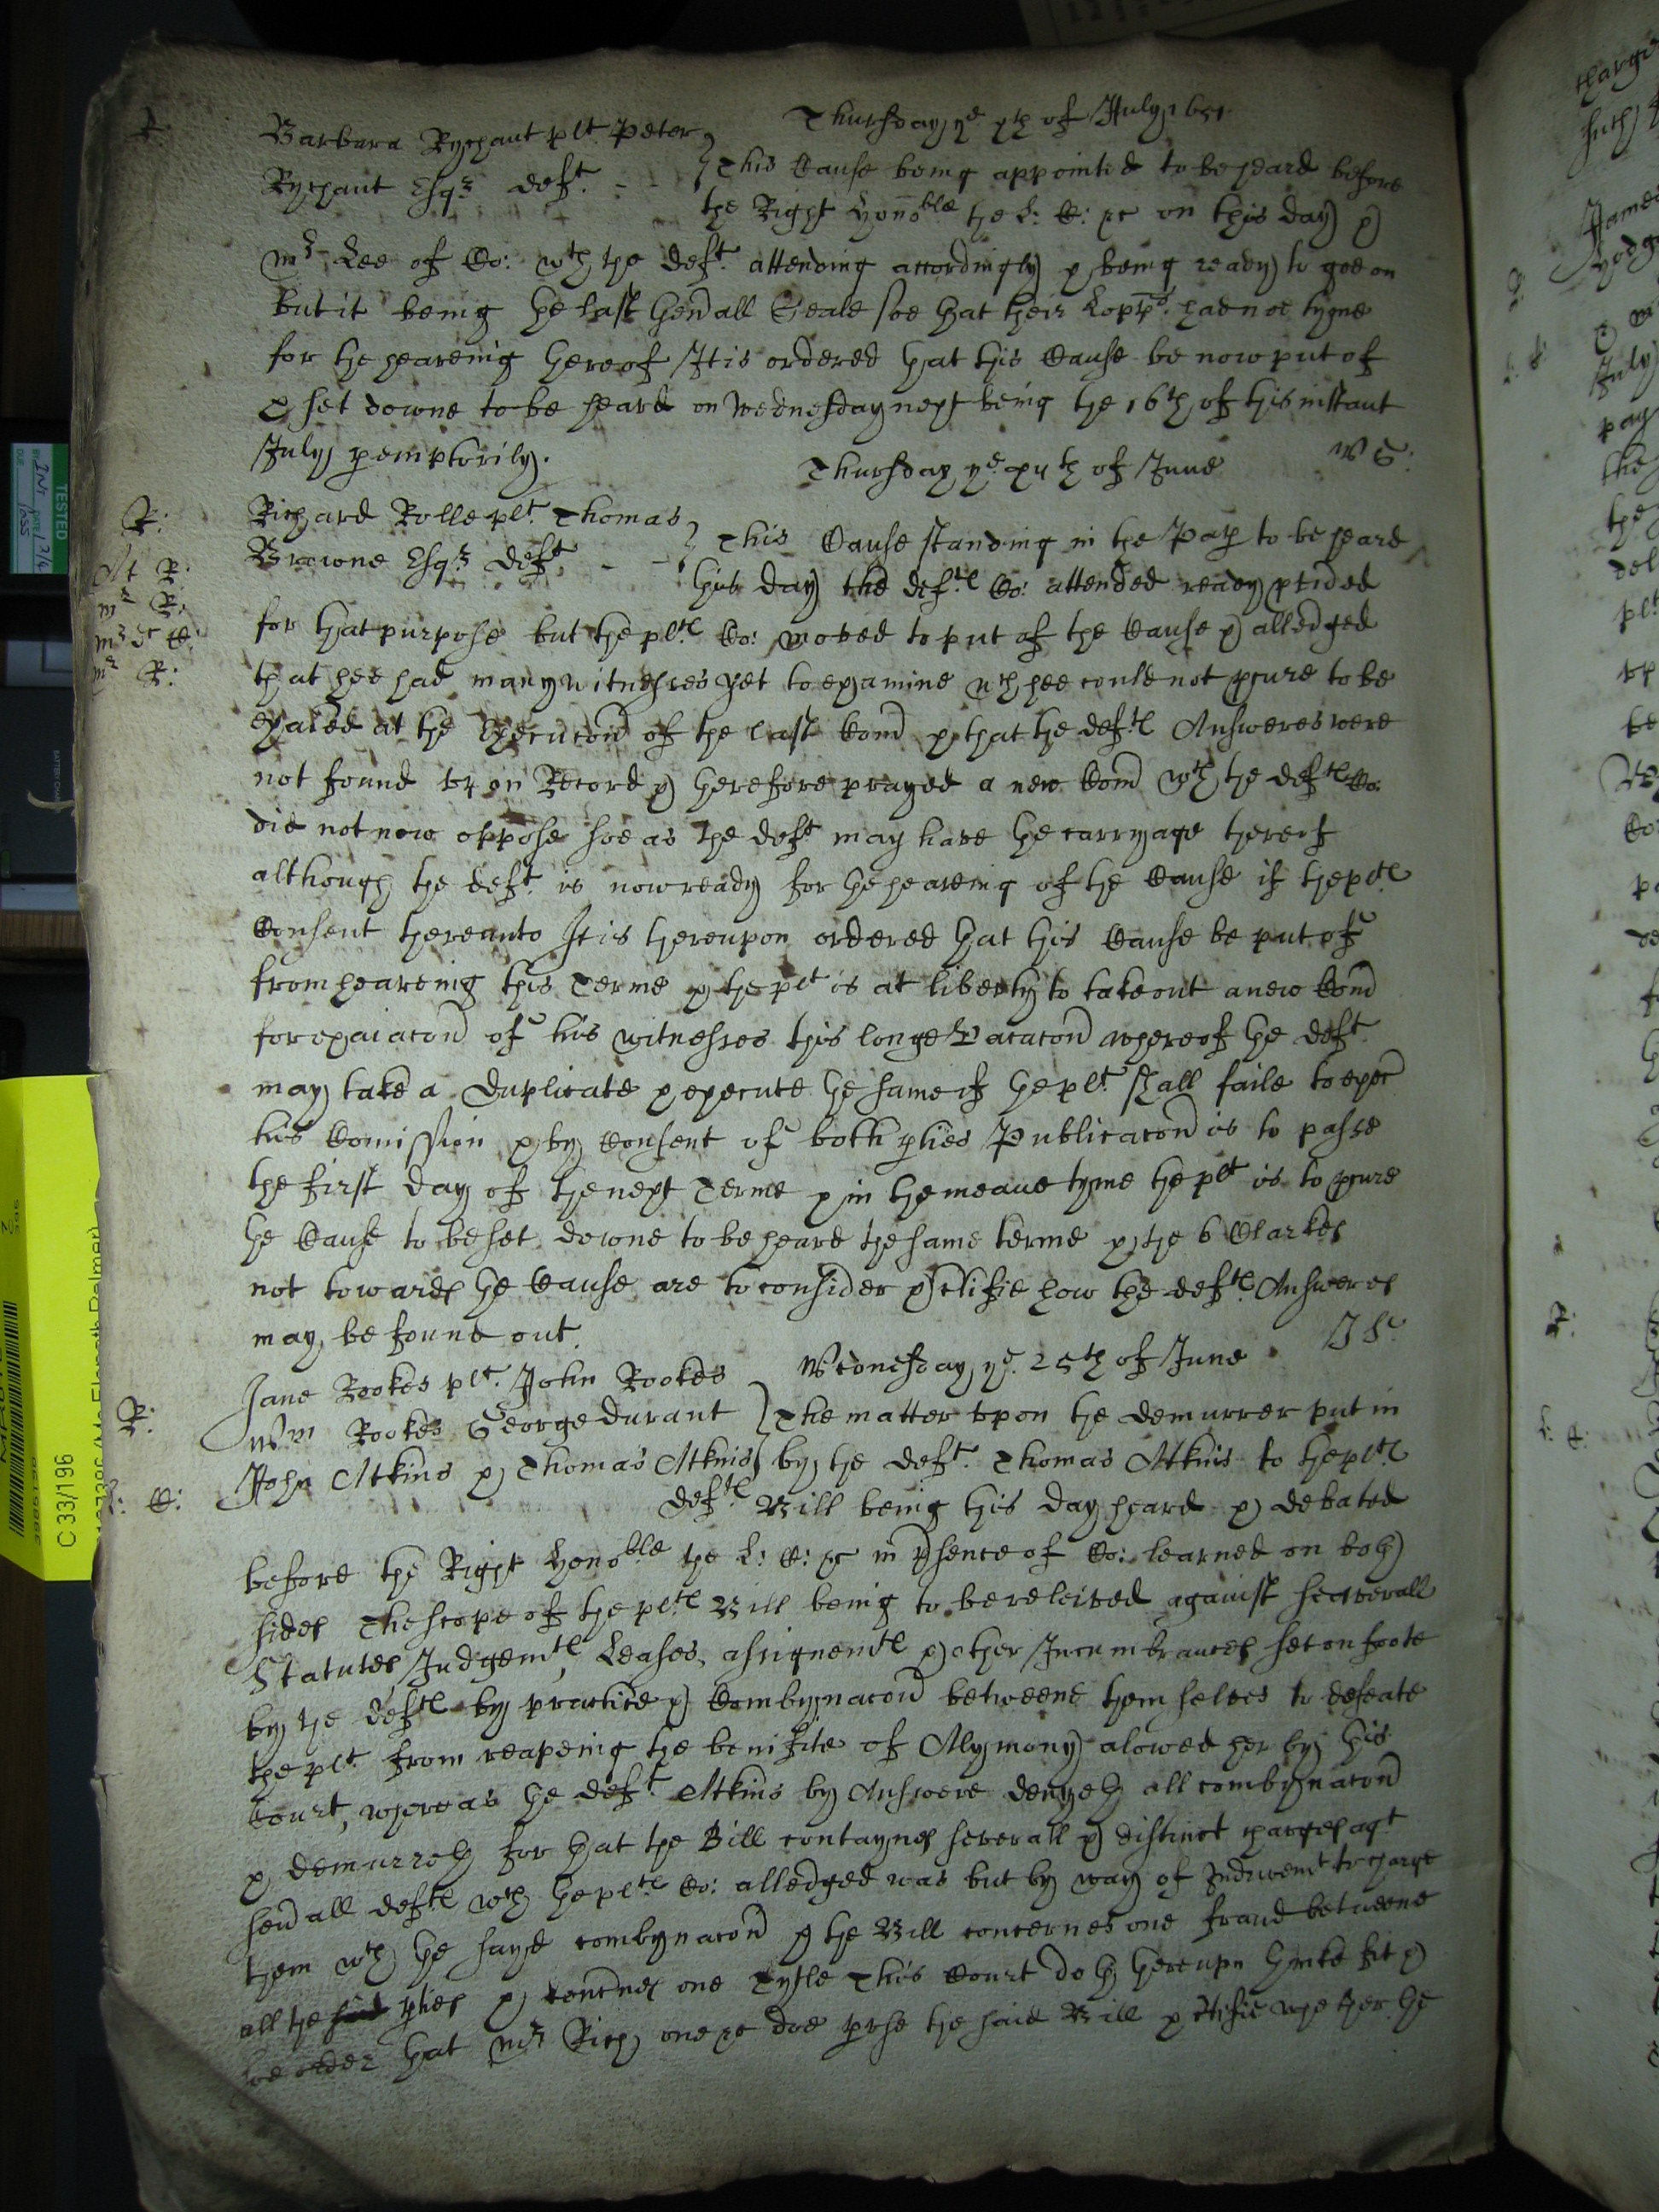 Thursday ye xth of July 1651
R:
Barbara Rychaut plt Peter
Rychaut Esqr deft - - This Cause being appointed to be heard before
the Right Honoble the L: C: &c on this day &
mr Lee of Co: wth the deft attending accordingly & being ready to goe on
but it being the last Genall Seale soe that their Lopps had not tyme
for the heareing thereof It is ordered that this Cause be now put of
& set downe to be heard on Wednesday next being the 16th of this instant
July peremptorily.
W G:
Thursday ye of June
R:
Richard Rolle plt Thomas
Browne Esqr deft - - This Cause standing in the Pap to be heard
this day the defts Co: attended ready pvided
At R:
mr R:
mr C:
mr R:
for that purpose but the plts Co: moved to put of the Cause & alledged
that hee had many witnesses yet to examine wch hee could not pcure to be
exaied at the Execucon of the last Com & that the defts Answeres were
not found vp on Record & therefore prayed a new Com wch the defts Co:
did not now oppose soe as the deft may have the carryage thereof
although the deft is now ready for the heareing of the Cause if the plts
Consent thereunto It is thereupon ordered that this Cause be put of
from heareing this Terme & the plt is at liberty to take out a new Com
for exaiacon of his witnesses this longe Vacacon whereof the deft
may take a Duplicate & execute the same if the plt shall faile to exec
his Comission & by Consent of both pties Publicacon is to passe
the first day of the next Terme & in the meane tyme the plt is to pcure
the Cause to be set downe to be heard the same terme & the 6 Clarkes
not towardes the Cause are to consider & ctifie how the defts Answeres
may be found out.
Wednesday ye 25th of June
R:
Jane Rookes plt John Rookes
Wm Rookes George Durant The matter vpon the demurrer put in
John Atkins & Thomas Atkins by the deft Thomas Atkins to the plts
L: C:
defts Bill being this day heard & debated
before the Right Honoble the L: C: &c in psence of Co: learned on both
sides The scope of the plts Bill being to be releived against seaverall
Statutes Judgemts, Leases, assignemts & other Incumbrances set on foote
by the defts by practice & Combynacon betweene themselves to defeate
the plt from reapeing the benifite of Alymony alowed her by this
Court, whereas the deft Atkins by Answere denyeth all combynacon
& demurreth for that the Bill containes severall & distinct charges agt
sevall defts wch the plts Co: alledged was but by way of Inducemt to charge
them wth the sayd combynacon & the Bill concernes one fraud betweene
all the pties & concnes one Tytle This Court doth thereupn thinke fit &
soe order that mr Rich one &c doe pvse the said Bill & ctifie whether the
TESTED
DUE
C 33/196